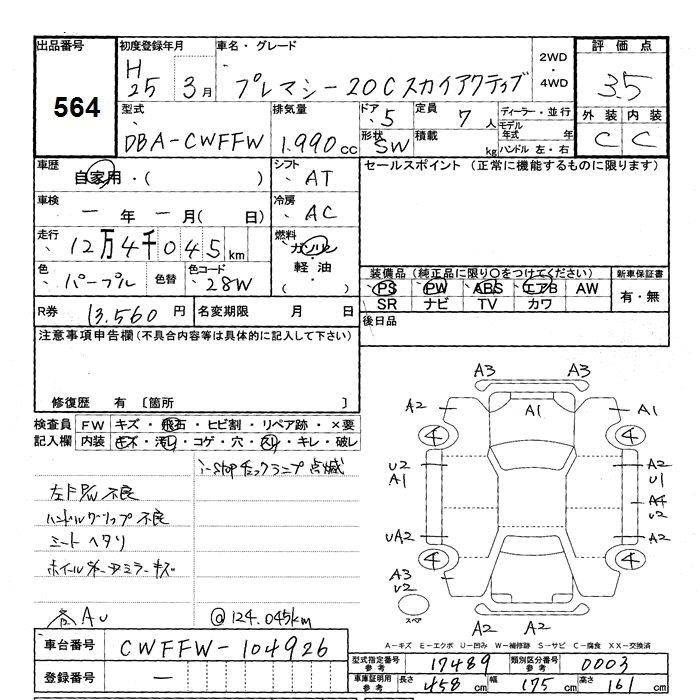 出品番号
564
初度登録年月
H
25 3月
車名・グレード
プレマシー20Cスカイアクティブ
2WD
・
4WD
評価点
3.5
外装 内装
C C
型式
DBA-CWFFW
排気量
1.990cc
ドア 5
形状 SW
定員 7人
積載 kg
ディーラー・並行
モデル年式 年
ハンドル 左・右
車歴
自家用・( )
シフト
AT
セールスポイント (正常に機能するものに限ります)
車検
一年一月( 日)
冷房
AC
走行
12万4千045km
燃料
ガソリン
軽油
( )
色
パープル
色替
色コード
28W
装備品 (純正品に限り○をつけてください)
新車保証書
PS PW ABS エアB AW
有・無
SR ナビ TV カワ
R券 13.560円
名変期限 月 日
後日品
注意事項申告欄 (不具合内容等は具体的に記入して下さい)
修復歴 有 〔箇所
検査員記入欄
FW キズ・飛石・ヒビ割・リペア跡・×要
内装 キズ・汚レ・コゲ・穴・スレ・キレ・破レ
i-stopチェックランプ点滅
左F P/W 不良
ハンドルグリップ 不良
シートヘタリ
ホイール
ミラーキズ
各AU
@124.045km
A3 A3
A2 A1 A1
4 4
U2 A1
A2 U2
A4 U2
UA2 A2
4 4
A3 U2
スペア
A2 A2
A2
A-キズ E-エクボ U-凹み W-補修跡 S-サビ C-腐食 XX-交換済
車台番号 CWFFW-104926
登録番号 一
型式指定番号 参考 17489
類別区分番号 参考 0003
車庫証明用 参考 長さ 458cm 幅 175cm 高さ 161cm